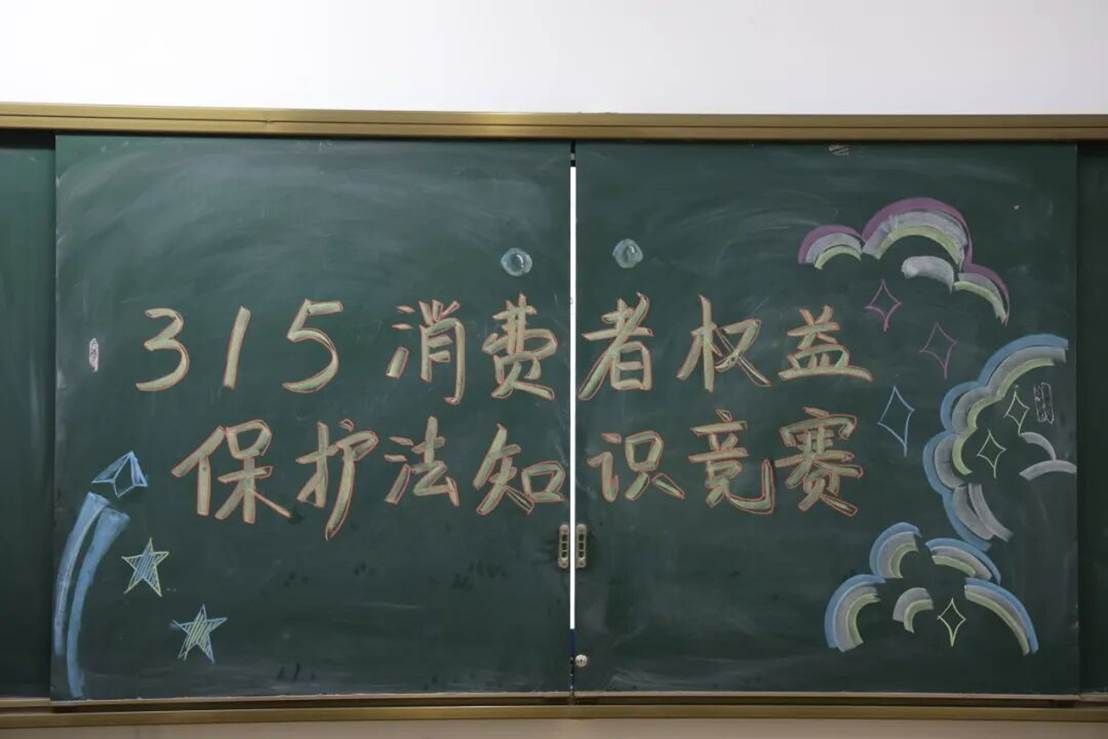 315消费者权益
保护法知识竞赛